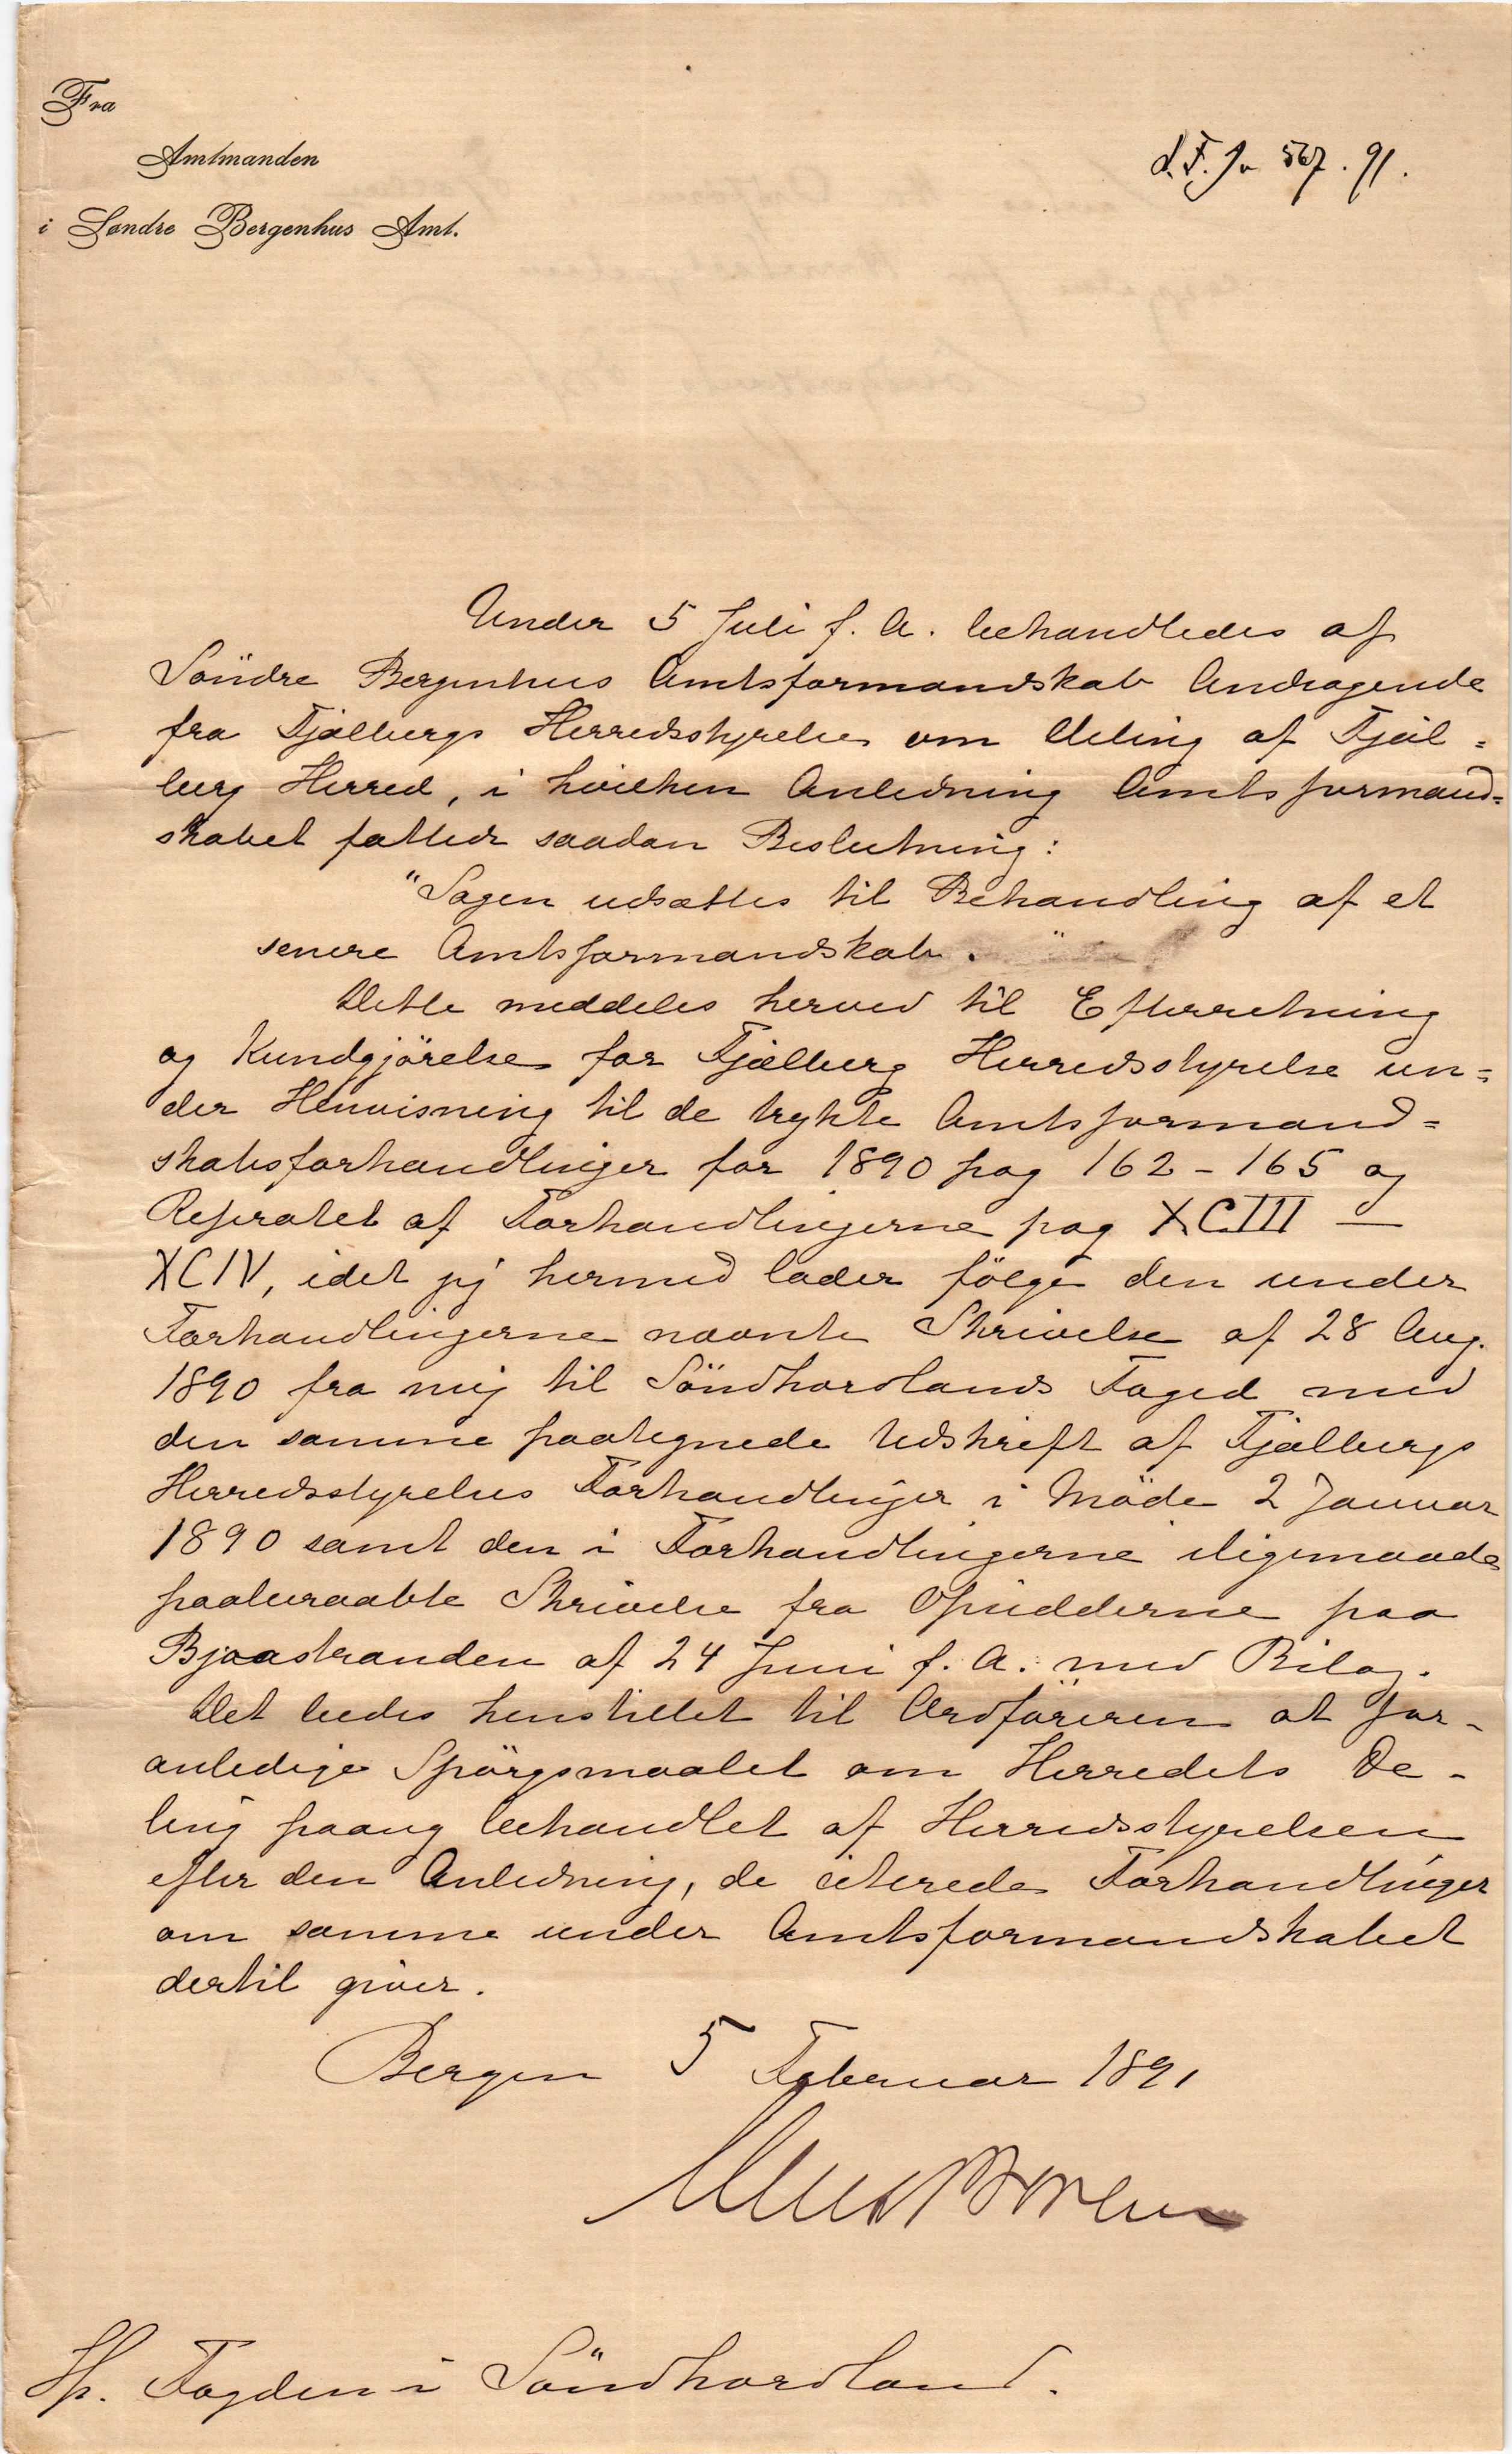 Fra
Amtmanden
i Søndre Bergenhus Amt.
d. F. Jo 567. 91.
Under 5 Juli f. A. behandledes af
Söndre Bergenhus Amtsformandskab Andragende
fra Fjælbergs Herredsstyrelse om Deling af Fjæl=
berg Herred, i hvilken Anledning Amtsformand=
skabet fattede saadan Beslutning:
"Sagen udsættes til Behandling af et
senere Amtsformandskab."
Dette meddeles herved til Efterretning
og Kundgjörelse for Fjælberg Herredsstyrelse un=
der Henvisning til de trykte Amtsformand=
skabsforhandlinger for 1890 pag 162 - 165 og
Referatet af Forhandlingerne pag XCIII —
XCIV, idet jeg hermed lader fölge den under
Forhandlingerne nævnte Skrivelse af 28 Aug.
1890 fra mig til Söndhordlands Foged med
den samme paategnede Udskrift af Fjælbergs
Herredsstyrelses Forhandlinger i Möde 2 Januar
1890 samt den i Forhandlingerne ligemaade
paaberaabte Skrivelse fra Opsidderne paa
Bjoastranden af 24 Juni f. A. med Bilag.
Det bedes henstillet til Ordföreren at for-
anledige Spörgsmaalet om Herredets De-
ling paany behandlet af Herredsstyrelsen
efter den Anledning, de citerede Forhandlinger
om samme under Amtsformandskabet
dertil giver.
Bergen 5 Februar 1891
Hr. Fogden i Söndhordland.